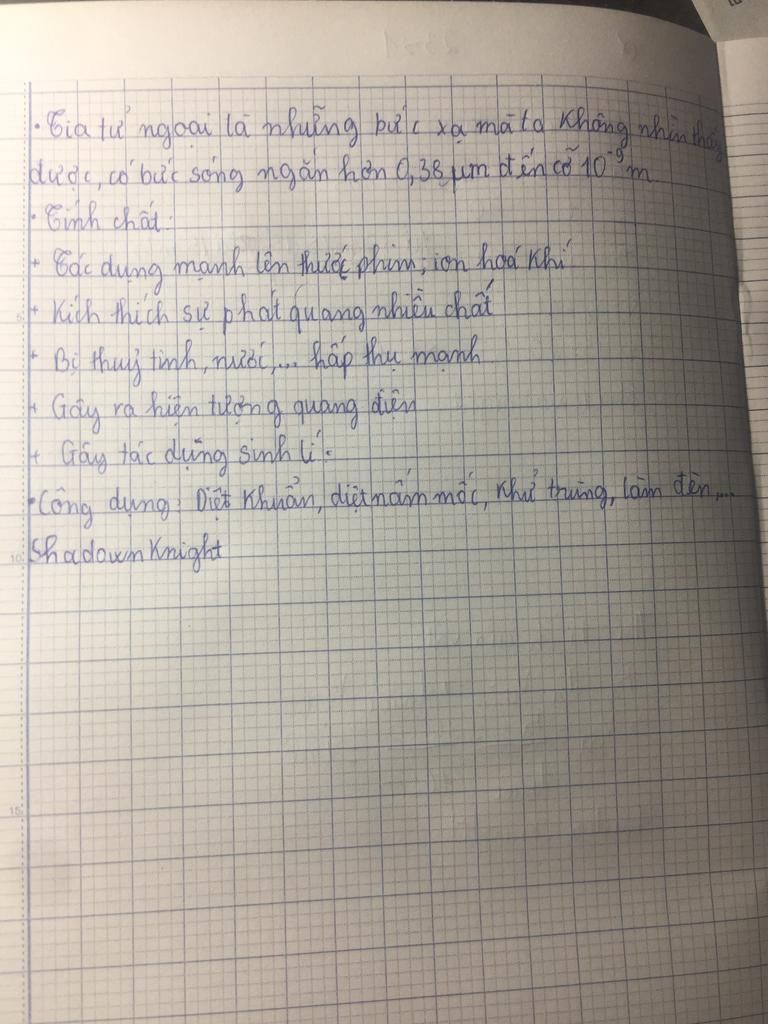 • Tia tử ngoại là những bức xạ mà ta không nhìn thấy
được, có bức sóng ngắn hơn 0,38 µm đến cỡ 10⁻⁹ m
• Tính chất:
+ Tác dụng mạnh lên thước phim, ion hoá khí
+ Kích thích sự phát quang nhiều chất
+ Bị thuỷ tinh, nước,... hấp thụ mạnh
+ Gây ra hiện tượng quang điện
+ Gây tác dụng sinh lí.
• Công dụng: Diệt khuẩn, diệt nấm mốc, khử trùng, làm đèn,...
Shadown Knight
5
10
15